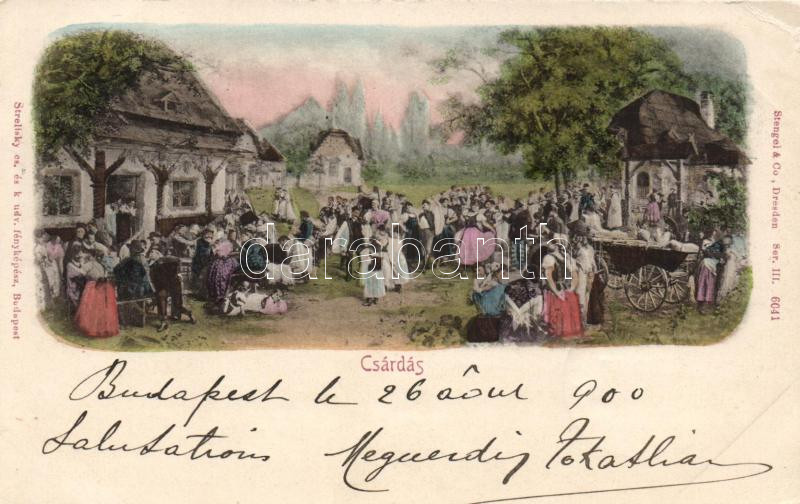 Strelisky cs. és k. udv. fényképész, Budapest
Stengel & Co., Dresden Ser. III. 6041
darabanth
Csárdás
Budapest le 26 août 900
Salutations Meguerdiy Tokatlian